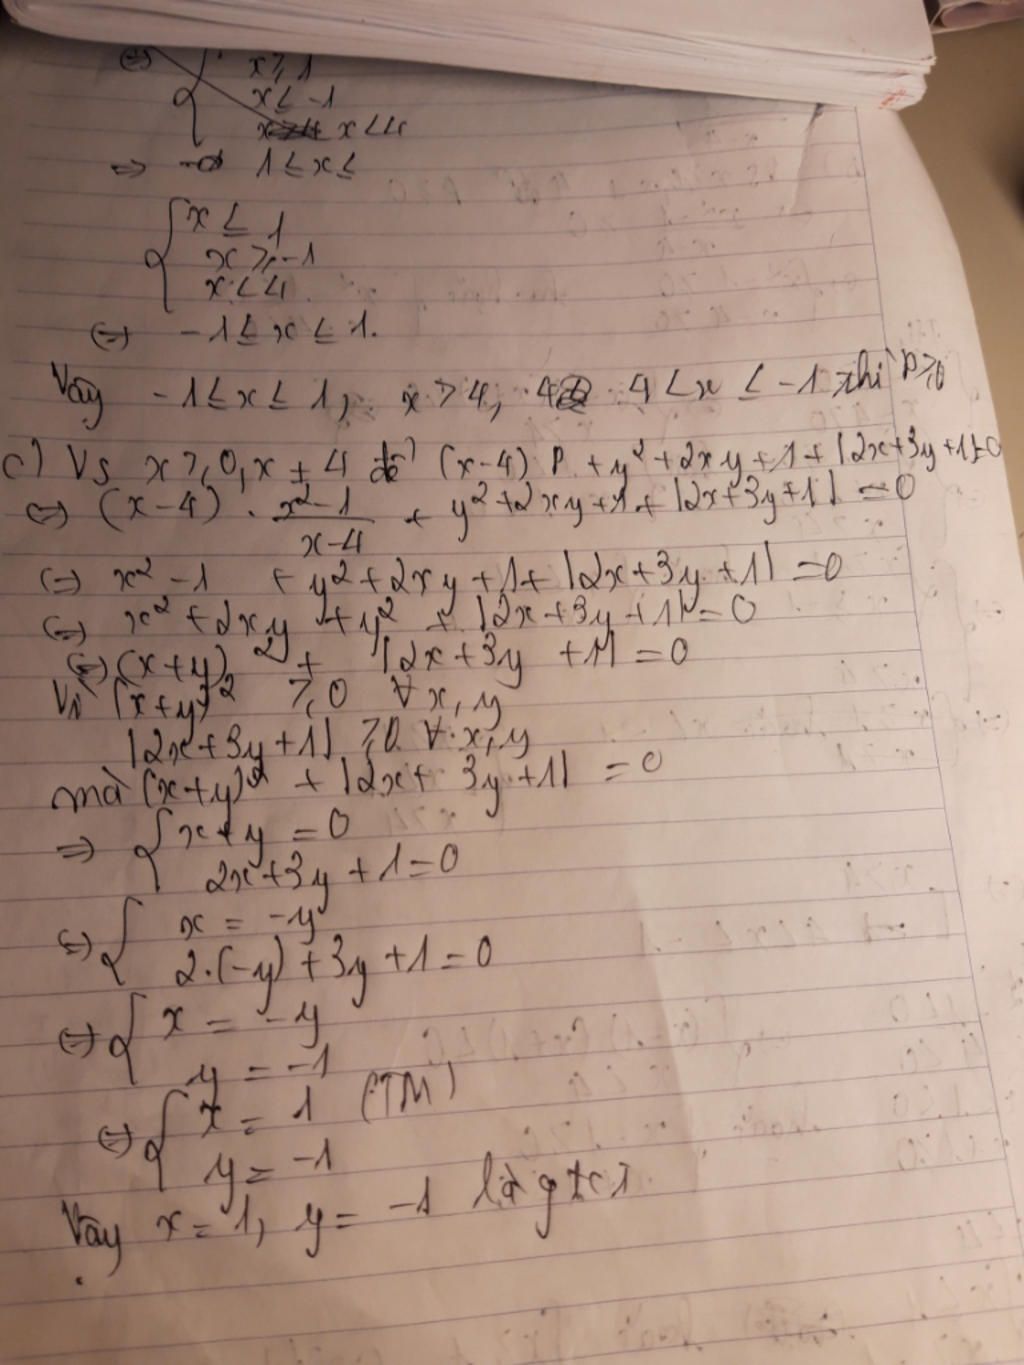 ⇔ { x ≥ 1
x ≤ -1
x < 4
⇒ 1 ≤ x ≤
{ x ≤ 1
x ≥ -1
x < 4
⇔ -1 ≤ x ≤ 1.
Vậy -1 ≤ x ≤ 1, x > 4, 4 < x ≤ -1 thì P ≥ 0
c) Vs x ≥ 0, x ≠ 4 để (x-4) P + y² + 2xy + 1 + |2x+3y+1| = 0
⇔ (x-4) . (x²-1)/(x-4) + y² + 2xy + 1 + |2x+3y+1| = 0
⇔ x² - 1 + y² + 2xy + 1 + |2x+3y+1| = 0
⇔ x² + 2xy + y² + |2x+3y+1| = 0
⇔ (x+y)² + |2x+3y+1| = 0
Vì (x+y)² ≥ 0 ∀ x, y
|2x+3y+1| ≥ 0 ∀ x, y
mà (x+y)² + |2x+3y+1| = 0
⇒ { x+y = 0
2x+3y+1=0
⇔ { x = -y
2.(-y)+3y+1=0
⇔ { x = -y
y = -1
⇔ { x = 1 (TM)
y = -1
Vậy x = 1, y = -1 là gtct